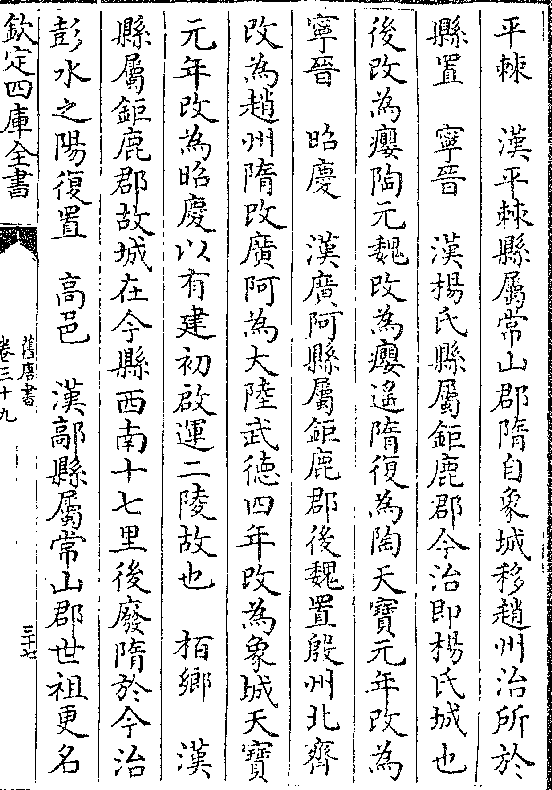 平棘　漢平棘縣屬常山郡隋自象城移趙州治所於
縣置　寧晉　漢楊氏縣屬鉅鹿郡今治即楊氏城也
後改為癭陶元魏改為癭遙隋復為陶天寶元年改為
寧晉　昭慶　漢廣阿縣屬鉅鹿郡後魏置殷州北齊
改為趙州隋改廣阿為大陸武德四年改為象城天寶
元年改為昭慶以有建初啟運二陵故也　柏鄉　漢
縣屬鉅鹿郡故城在今縣西南十七里後廢隋於今治
彭水之陽復置　高邑　漢鄗縣屬常山郡世祖更名
欽定四庫全書
舊唐書
卷三十九
三十七